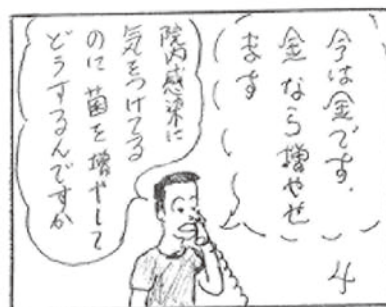 今は金です.
金なら増やせ
ます
院内感染に
気をつけてる
のに菌を増やして
どうするんですか
4